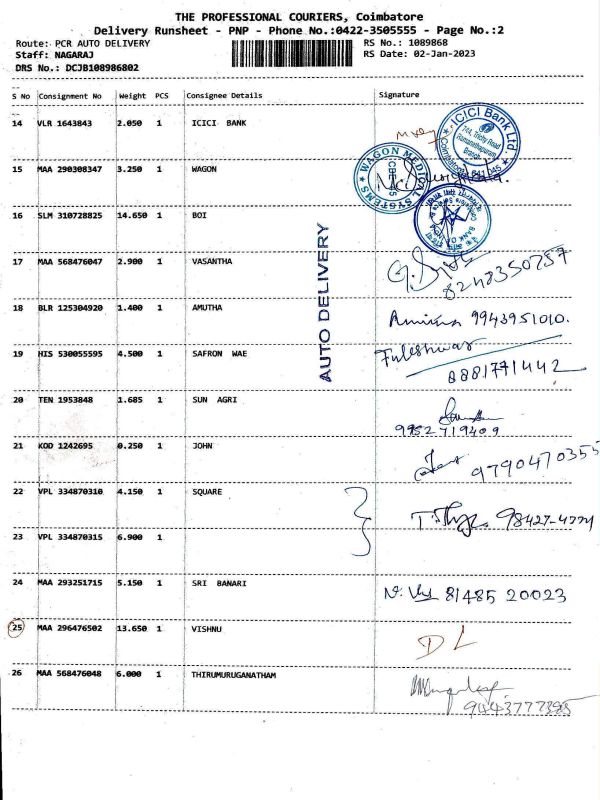 THE PROFESSIONAL COURIERS, Coimbatore
Delivery Runsheet - PNP - Phone No.:0422-3505555 - Page No.:2
Route: PCR AUTO DELIVERY
RS No.: 1089868
Staff: NAGARAJ
RS Date: 02-Jan-2023
DRS No.: DCJB108986802
S No Consignment No Weight PCS Consignee Details Signature
14 VLR 1643843 2.050 1 ICICI BANK
ICICI Bank Ltd.
744, Trichy Road
Ramanathapuram
15 MAA 290308347 3.250 1 WAGON
WAGON MEDICAL SYSTEMS
CBE-45
16 SLM 310728825 14.650 1 BOI
17 MAA 568476047 2.900 1 VASANTHA
8248350287
AUTO DELIVERY
18 BLR 125304920 1.400 1 AMUTHA
9943951010.
19 HIS 530055595 4.500 1 SAFRON WAE
Fuleshwar
8881771442
20 TEN 1953848 1.685 1 SUN AGRI
9952719409
21 KOD 1242695 0.250 1 JOHN
9790470355
22 VPL 334870310 4.150 1 SQUARE
23 VPL 334870315 6.900 1
24 MAA 293251715 5.150 1 SRI BANARI
81485 20023
25 MAA 296476502 13.650 1 VISHNU
DL
26 MAA 568476048 6.000 1 THIRUMURUGANATHAM
9443777395